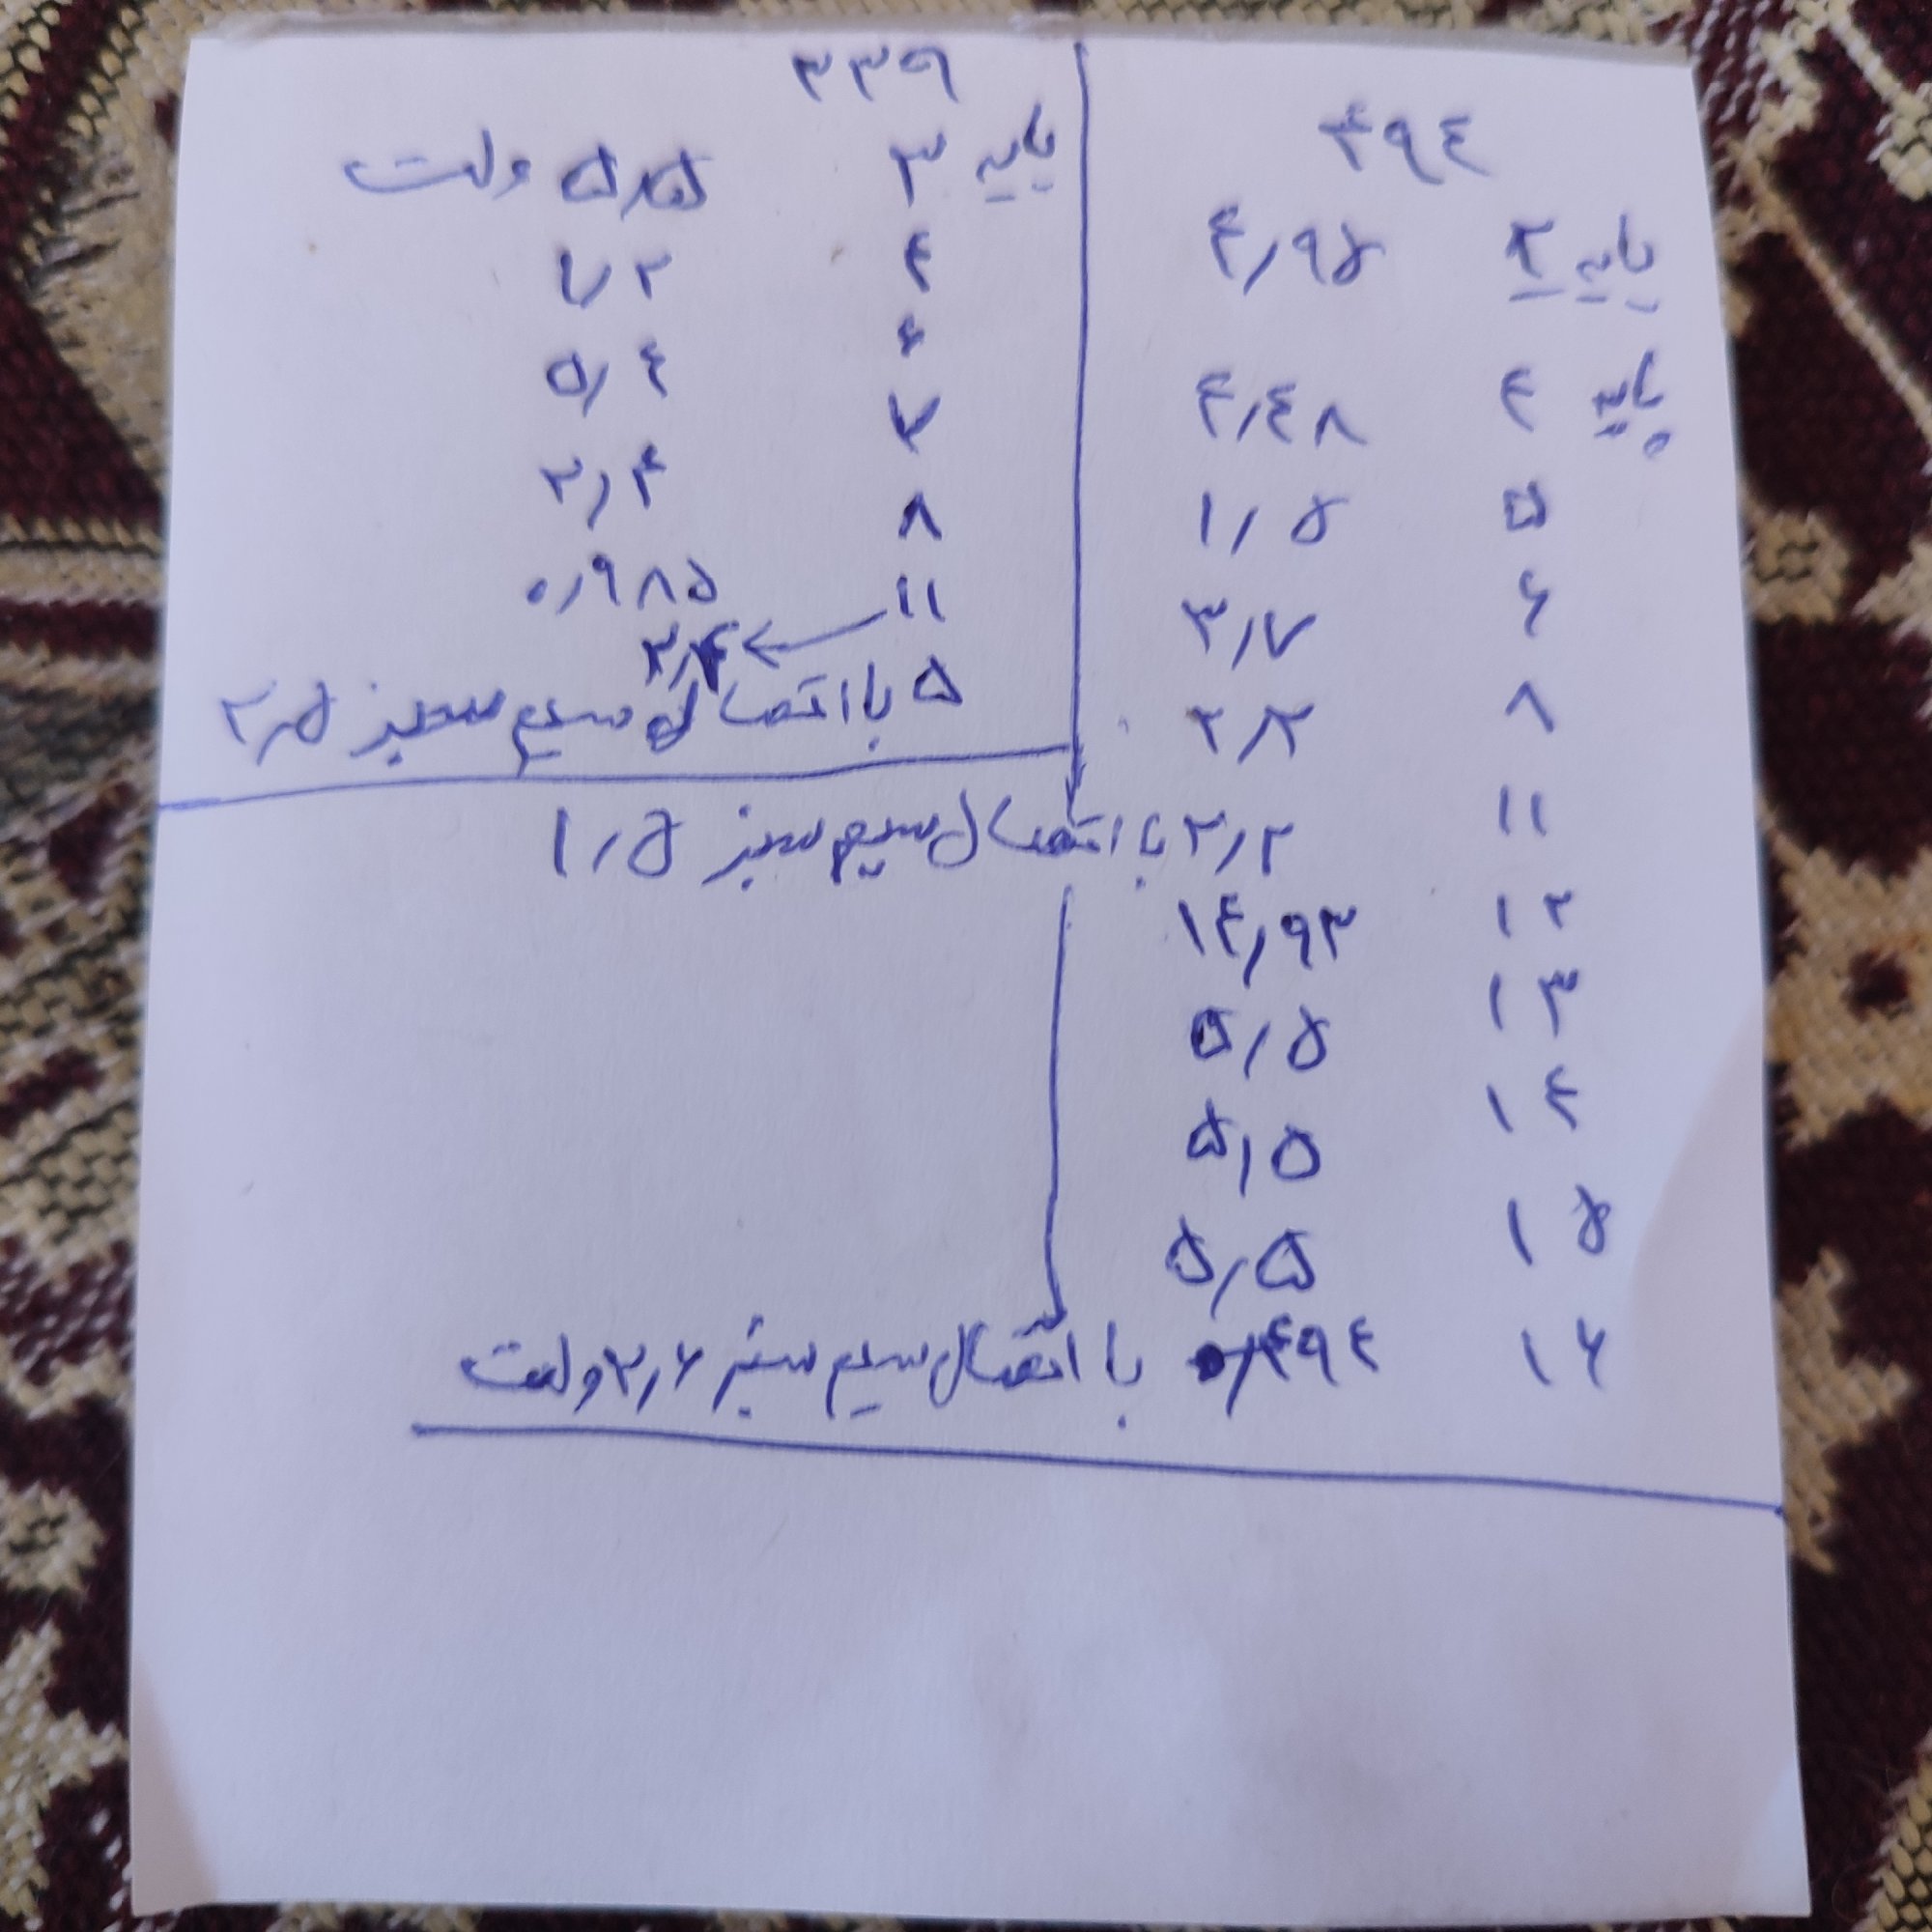 ۴۹۴
پایه ۲ ۴,۹۵
پایه ۴ ۴,۴۸
۵ ۱,۵
۶ ۳,۷
۸ ۲,۳
۱۱ ۲,۲ با اتصال سیم سبز ۱,۵
۱۲ ۱۴,۹۳
۱۳ ۵,۵
۱۴ ۵,۵
۱۵ ۵,۵
۱۶ ۰,۴۹۴ با اتصال سیم سبز ۲,۶ ولت
۳۳۹
پایه ۳ ۵,۵ ولت
۴ ۱,۲
۶ ۵,۴
۷ ۲,۴
۸ ۰,۹۸۵
۱۱ ← ۲,۴
۵ با اتصال سیم سبز ۲,۵